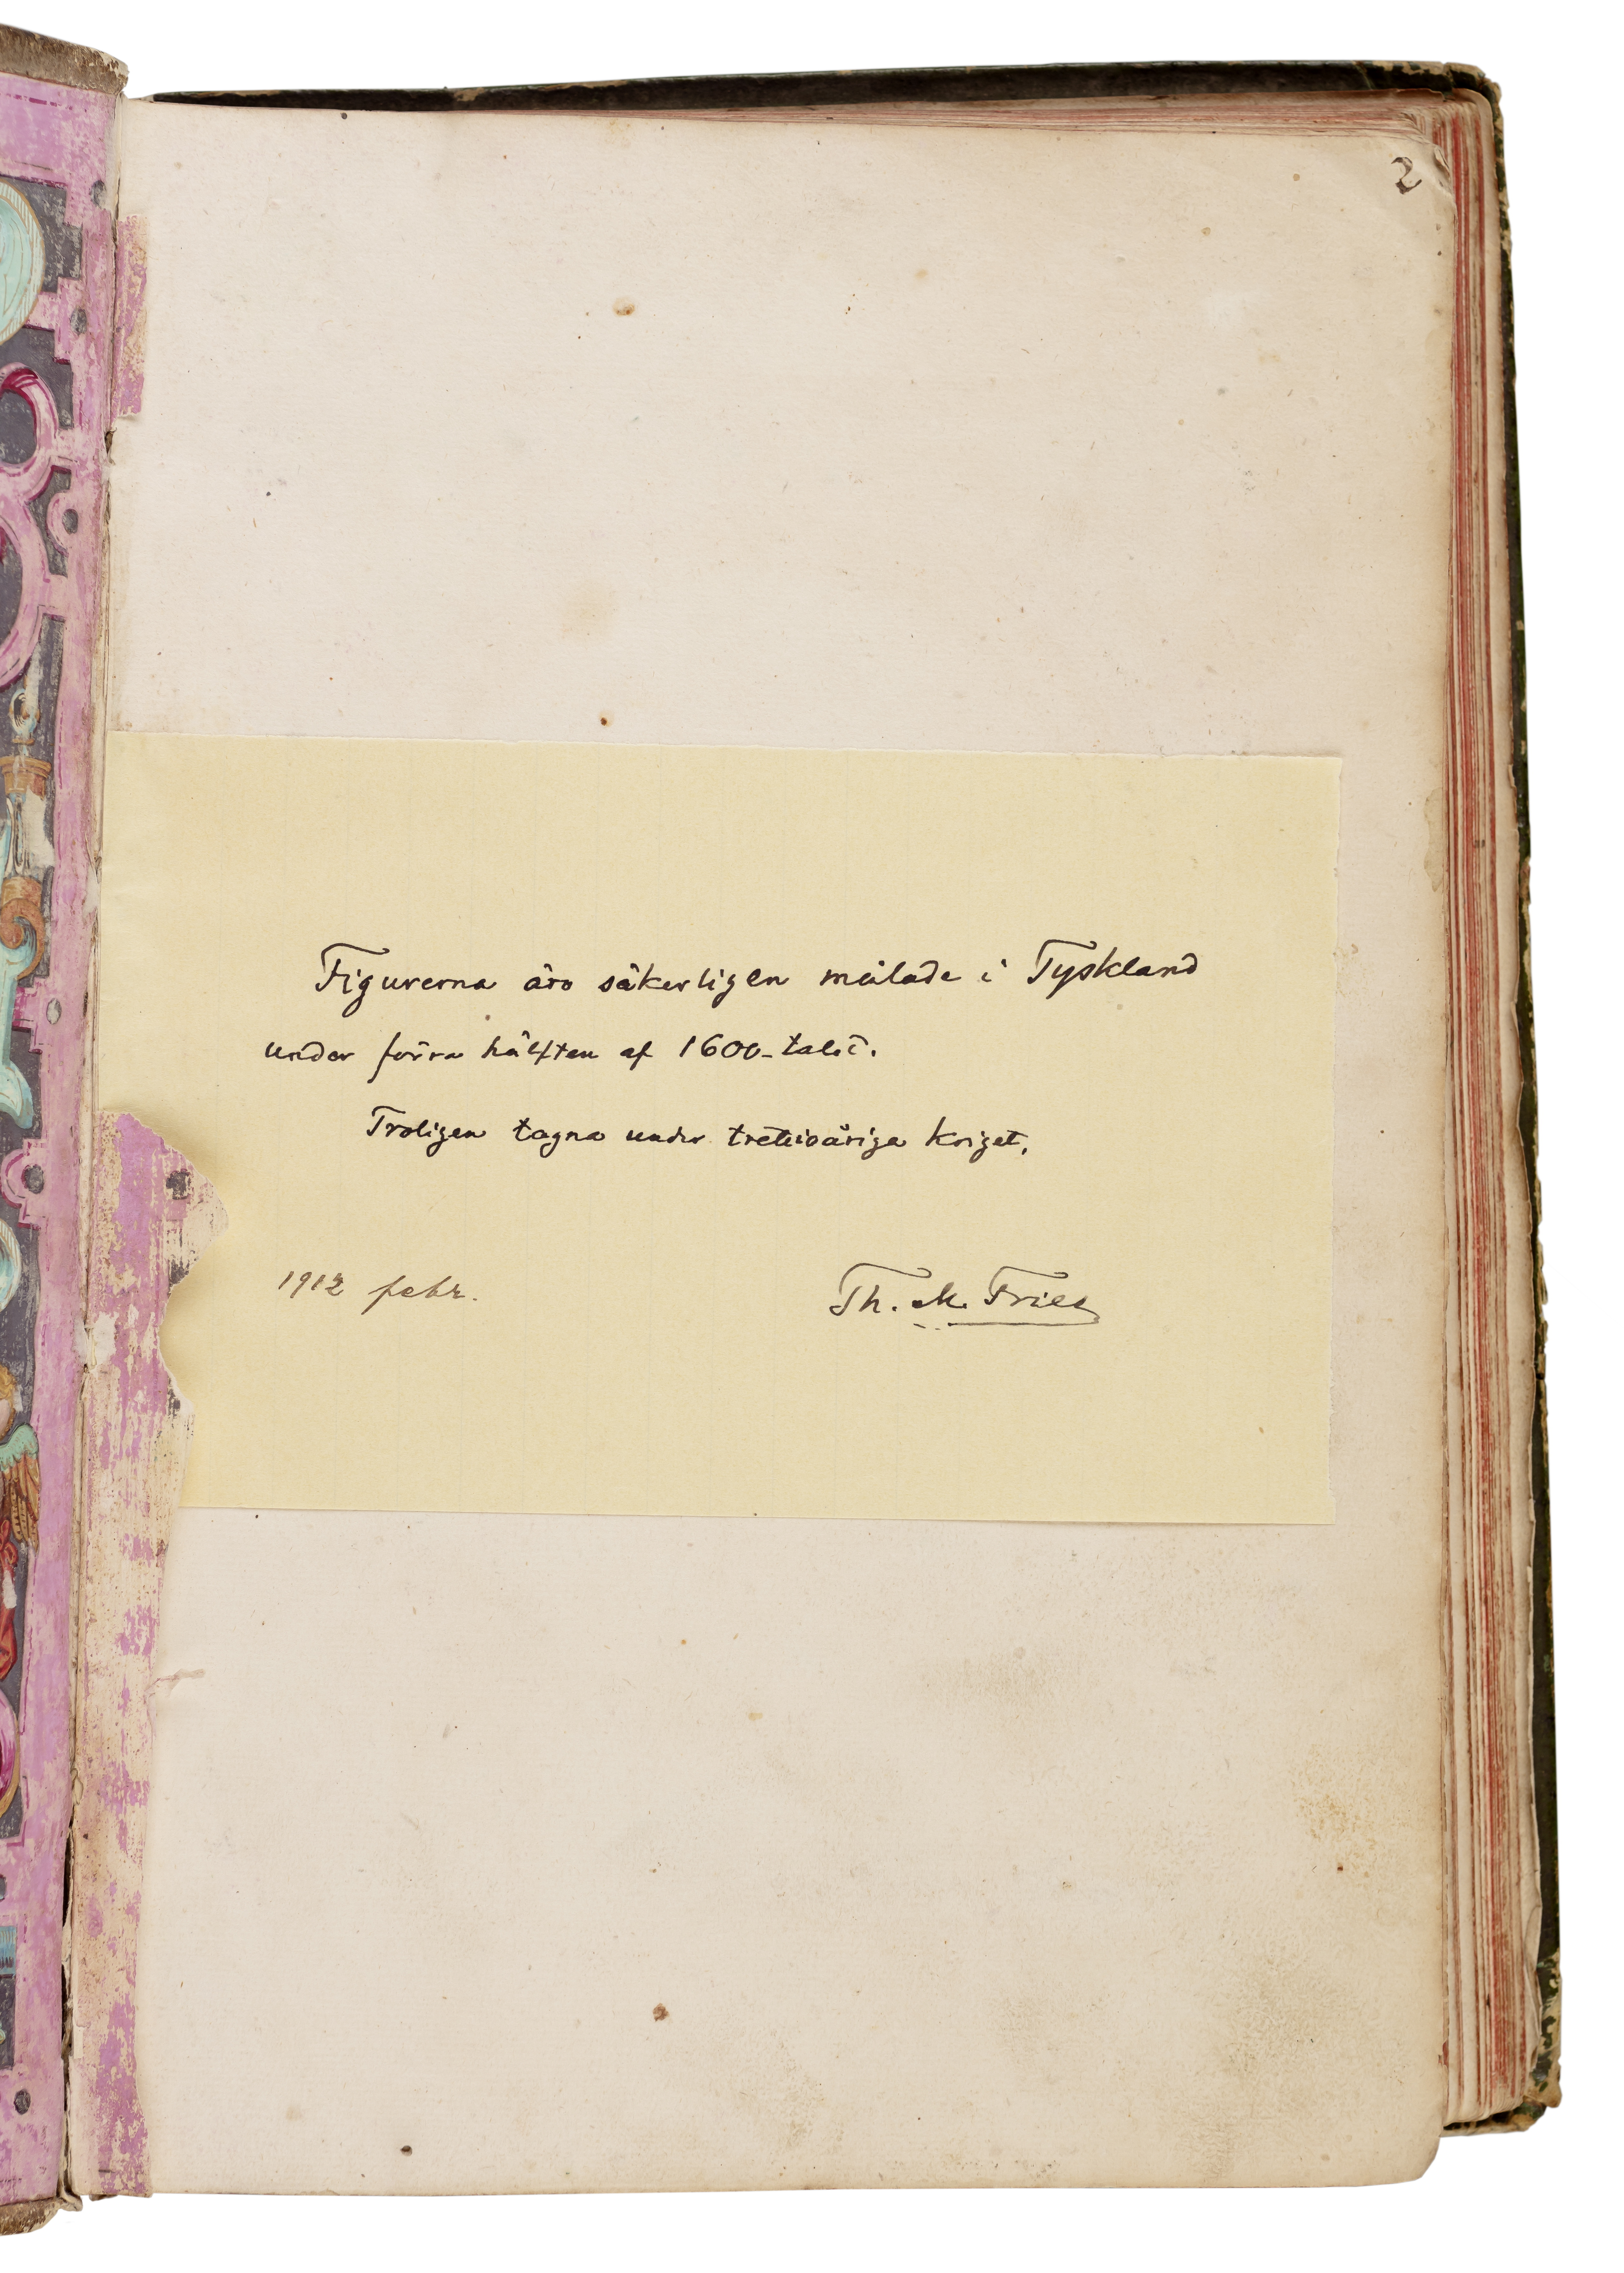 2
Figurerna äro säkerligen målade i Tyskland
under förra hälften af 1600-talet.
Troligen tagna under tretioåriga kriget.
1912 febr.
Th. M. Fries